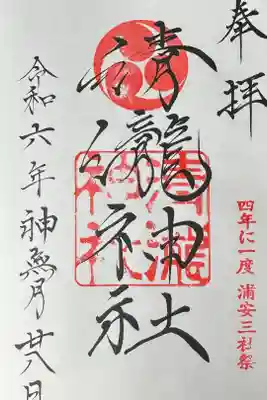 奉拝
四年に一度 浦安三社祭
清瀧神社
清瀧
神社
令和六年神無月廿八日